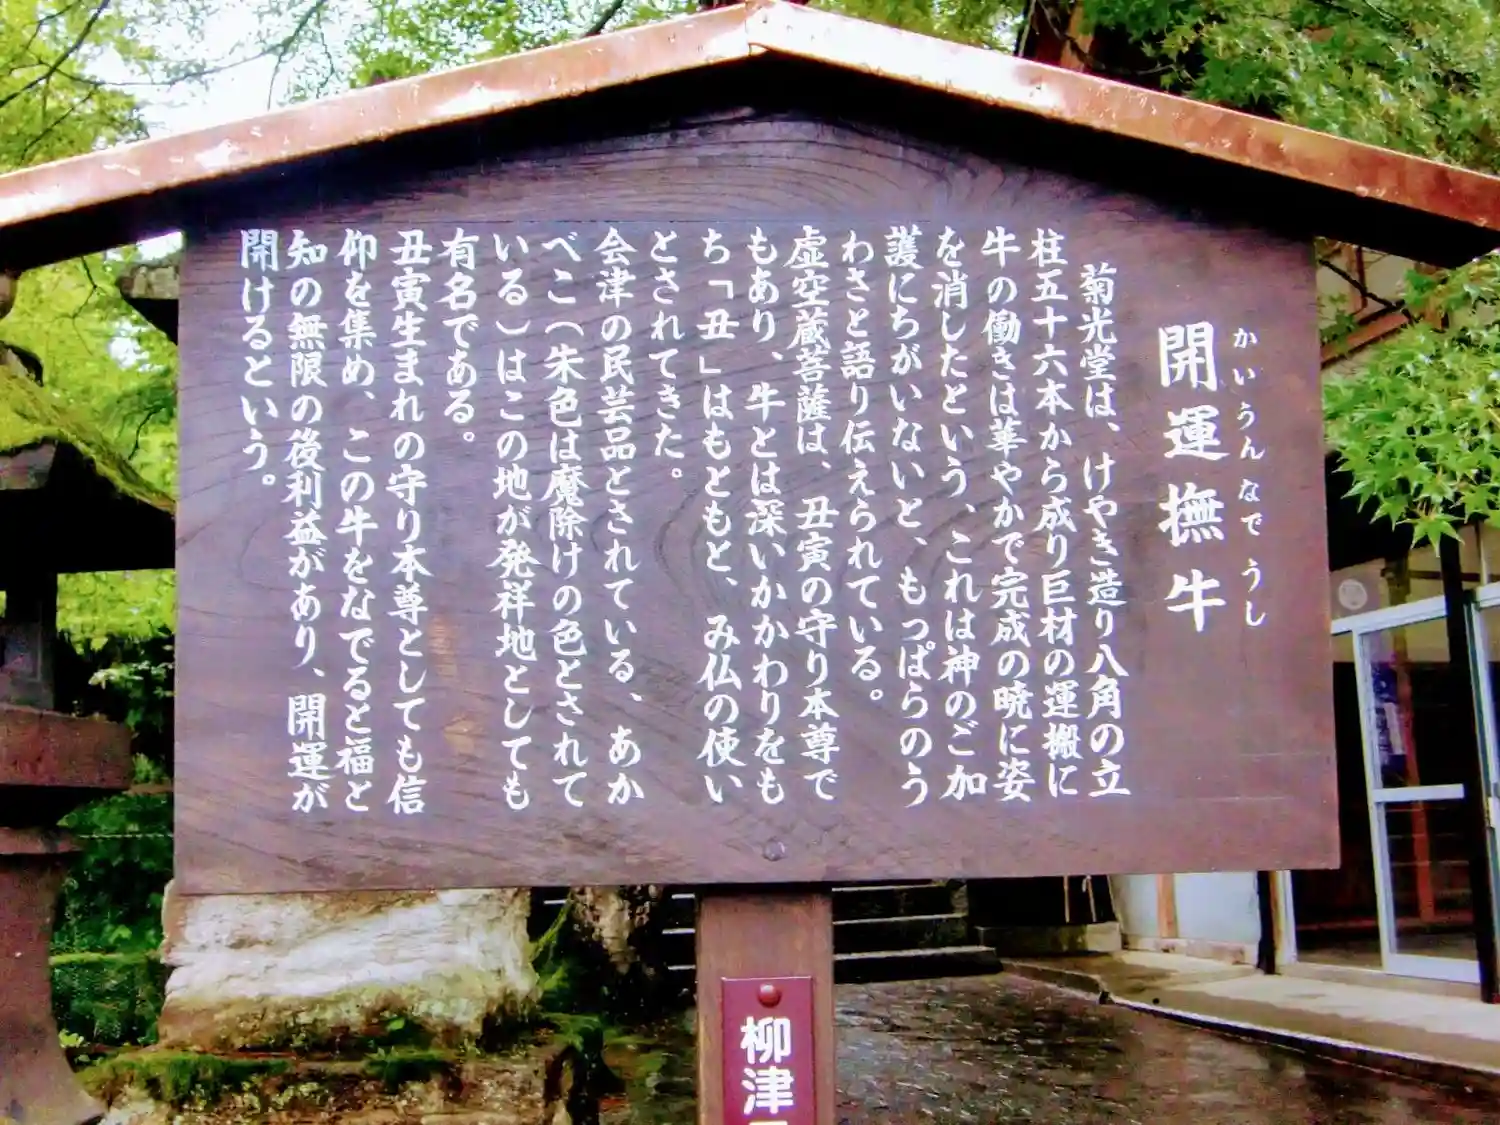 開運撫牛
かいうんなでうし
菊光堂は、けやき造り八角の立
柱五十六本から成り巨材の運搬に
牛の働きは華やかで完成の暁に姿
を消したという、これは神のご加
護にちがいないと、もっぱらのう
わさと語り伝えられている。
虚空蔵菩薩は、丑寅の守り本尊で
もあり、牛とは深いかかわりをも
ち「丑」はもともと、み仏の使い
とされてきた。
会津の民芸品とされている、あか
べこ(朱色は魔除けの色とされて
いる)はこの地が発祥地としても
有名である。
丑寅生まれの守り本尊としても信
仰を集め、この牛をなでると福と
知の無限の後利益があり、開運が
開けるという。
柳津